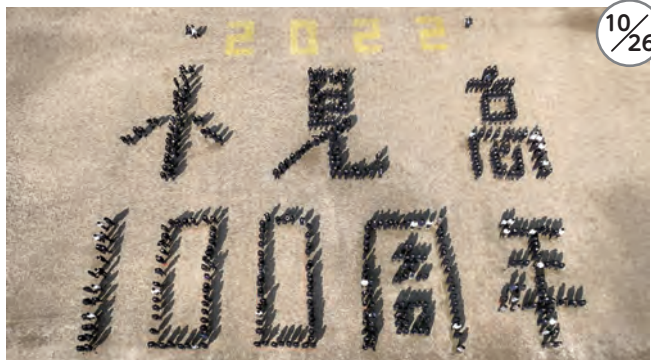 10/26
2022
氷見高
100周年